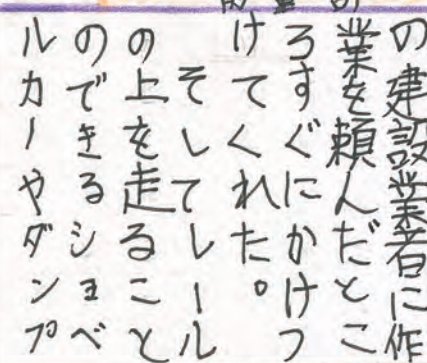 の建設業者に作
業を頼んだとこ
ろすぐにかけつ
けてくれた。
そしてレール
の上を走ること
のできるショベ
ルカーやダンプ